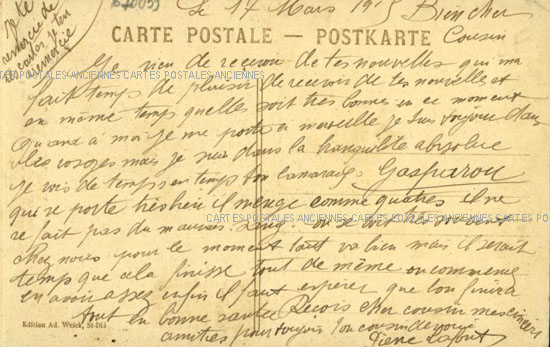 Je te
remercie de
tes cartes je ten
remercie
670059
Le 17 Mars 1915 Bien cher
CARTE POSTALE – POSTKARTE
Cousin
Je vien de recevoir de tes nouvelles qui ma
fait temps de plaisir de recevoir de tes nouvelles et
CARTES POSTALES ANCIENNES CARTES POSTALES ANCIENNES
en même temps quelles soit très bonnes en ce moment
Quand a moi je me porte a merveille je suis toujours dans
les vosges mais je suis dans la tranquilité absolue
je vois de temps en temps ton camarade Gasparou
qui se porte très bien il mange comme quatres il ne
CARTES POSTALES ANCIENNES CARTES POSTALES ANCIENNES CARTES PO
se fait pas du mauvais sang on se voit très souvent
chez nous pour le moment tout va bien mais il serait
temps que cela finisse tout de même on commence
en avoir assez enfin il faut espérer que lon finira
tout en bonne santée Recois cher cousin mes sincères
Edition Ad. Weick, St-Dié
amities pour toujours ton cousin
Pierre Lafont